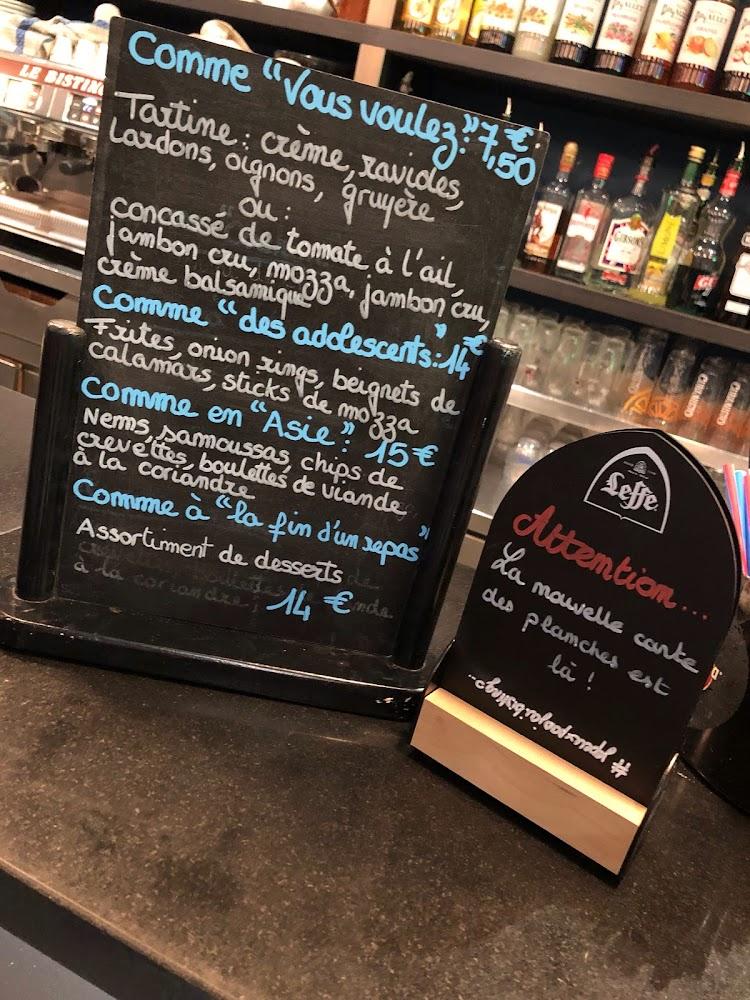 LE BISTING
Comme "Vous voulez": 7,50 €
Tartine : crème, ravioles,
lardons, oignons, gruyère
ou :
concassé de tomate à l'ail,
jambon cru, mozza, jambon cru,
crème balsamique
Comme "des adolescents": 14 €
Frites, onion rings, beignets de
calamars, sticks de mozza
Comme en "Asie": 15 €
Nems, samoussas, chips de
crevettes, boulettes de viande
à la coriandre
Comme à "la fin d'un repas"
Assortiment de desserts
à la coriandre,
14 €
Leffe
Attention...
La nouvelle carte
des planches est
là !